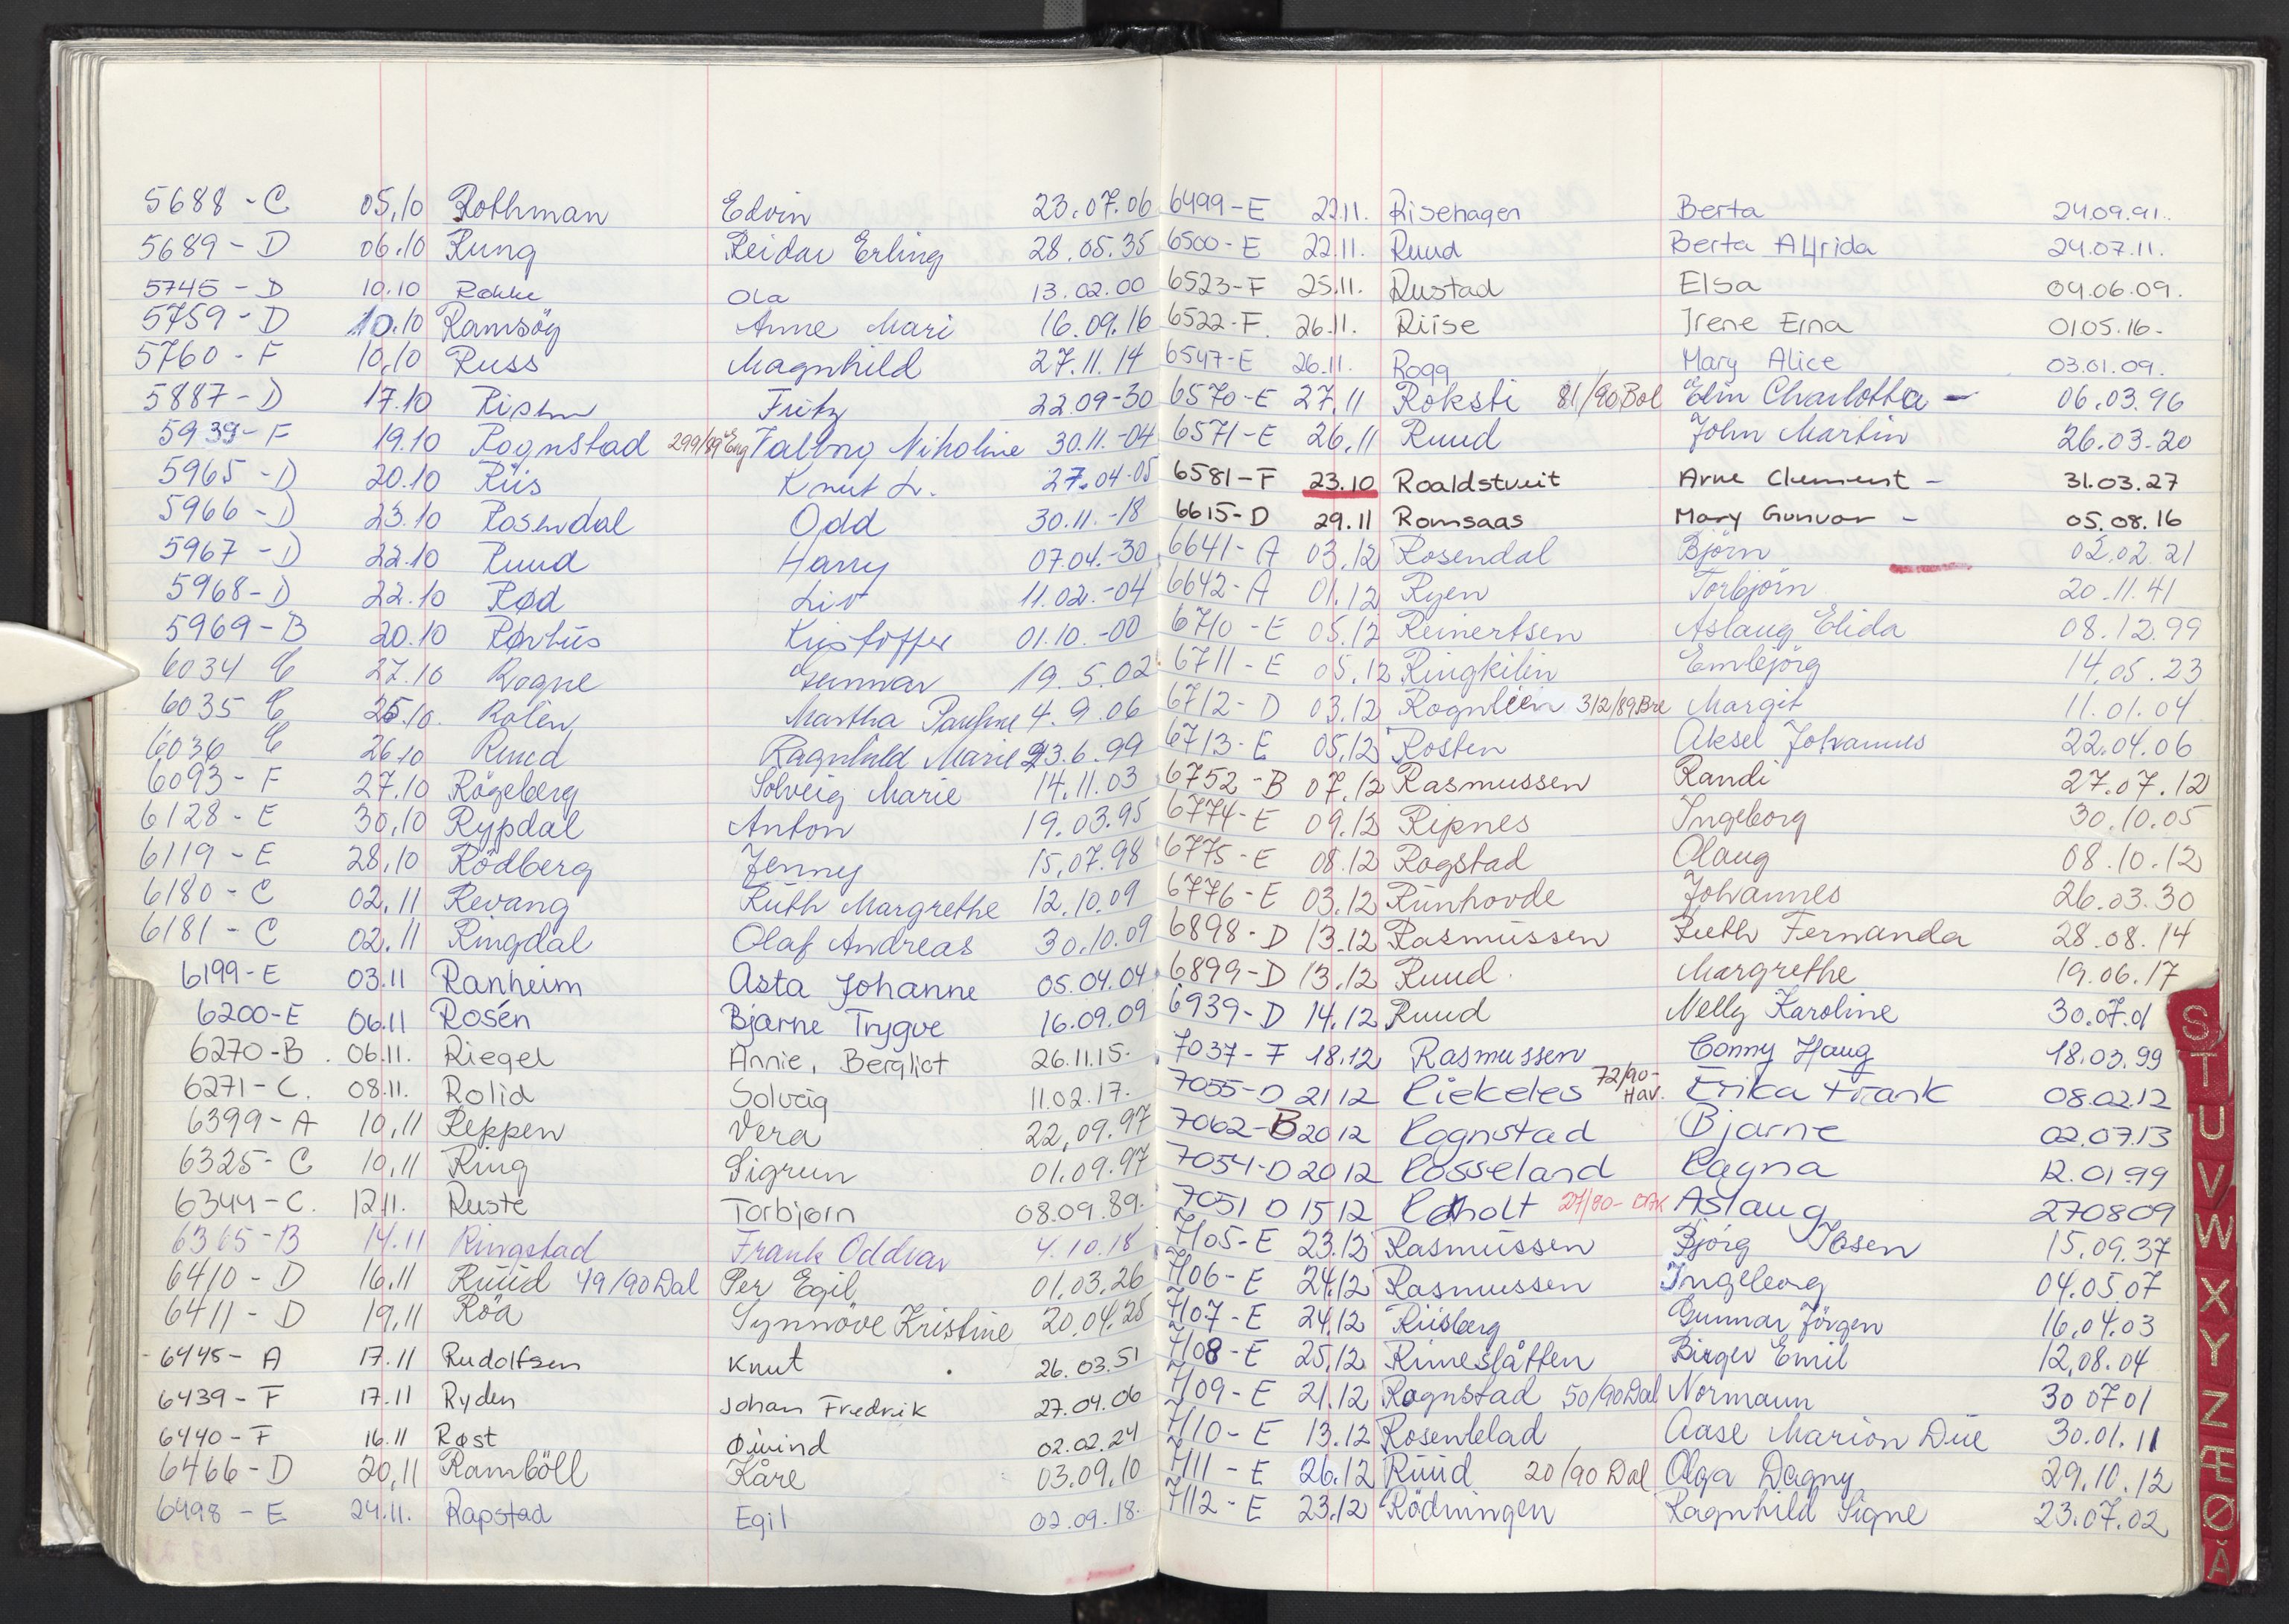 5688 - C 05.10 Rothman Edvin 23.07.06
5689 - D 06.10 Rung Reidar Erling 28.05.35
5745 - D 10.10 Rokke Ola 13.02.00
5759 - D 10.10 Ramsöy Anne Mari 16.09.16
5760 - F 10.10 Russ Magnhild 27.11.14
5887 - D 17.10 Fritz 22.09-30
5939 - F 19.10 Rognstad 299/89 Eng Valbng Nikoline 30.11.-04
5965 - D 20.10 Riis Knut L. 27.04-05
5966 - D 23.10 Rosendal Odd 30.11.-18
5967 - D 22.10 Ruud Harry 07.04.-30
5968 - D 22.10 Rød Liv 11.02.-04
5969 - B 20.10 Kristoffer 01.10.-00
6034 C 27.10 Rogne Gunnar 19.5.02
6035 C 25.10. Rolén Martha Pauline 4.9.06
6036 C 26.10 Ruud Ragnhild Marie 23.6.99
6093 - F 27.10 Rögeberg Solveig Marie 14.11.03
6128 - E 30.10 Rypdal Anton 19.03.95
6119 - E 28.10 Rödberg Jenny 15.07.98
6180 - C 02.11 Revang Ruth Margrethe 12.10.09
6181 - C 02.11 Ringdal Olaf Andreas 30.10.09
6199 - E 03.11 Ranheim Asta Johanne 05.04.04
6200 - E 06.11 Rosén Bjarne Trygve 16.09.09
6270 - B. 06.11. Riegel Annie, Bergliot 26.11.15.
6271 - C. 08.11. Rolid Solveig 11.02.17.
6399 - A 10.11 Reppen Vera 22.09.97
6325 - C 10.11 Ring Sigrun 01.09.97
6344 - C. 12.11. Ruste Torbjørn 08.09.89.
6365 - B 14.11 Ringstad Frank Oddvar 4.10.18
6410 - D 16.11 Ruud 49/90 Dal Per Egil 01.03.26
6411 - D 19.11 Röa Synnöve Kristine 20.04.25
6445 - A 17.11 Rudolfsen Knut 26.03.51
6439 - F 17.11 Ryden Johan Fredrik 27.04.06
6440 - F 16.11 Røst Øivind 02.02.24
6466 - D 20.11 Ramböll Kåre 03.09.10
6498 - E 24.11. Rapstad Egil 02.09.18.
6499 - E 22.11. Risehagen Berta 24.09.91.
6500 - E 22.11. Ruud Berta Alfrida 24.07.11.
6523 - F 25.11. Rustad Elsa 04.06.09.
6522 - F. 26.11. Riise Irene Erna 01.05.16-
6547 - E 26.11. Rogg Mary Alice 03.01.09.
6570 - E 27.11 Roksti 81/90 Bol Elin Charlotta - 06.03.96
6571 - E 26.11 Ruud John Martin 26.03-20
6581 - F 23.10 Roaldstveit Arne Clement - 31.03.27
6615 - D 29.11 Romsaas Mary Gunvor - 05.08.16
6641 - A 03.12 Rosendal Björn 02.02.21
6642 - A 01.12 Ryen Torbjörn 20.11.41
6710 - E 05.12 Reinertsen Aslaug Elida 08.12.99
6711 - E 05.12 Ringkilen Embjörg 14.05.23
6712 - D 03.12 Rognlien 312/89 Bre Margit 11.01.04
6713 - E 05.12 Rosten Aksel Johannes 22.04.06
6752 - B 07.12 Rasmussen Randi 27.07.12
6774 - E 09.12 Ripnes Ingeborg 30.10.05
6775 - E 08.12 Rogstad Olaug 08.10.12
6776 - E 03.12 Runhovde Johannes 26.03.30
6898 - D 13.12 Rasmussen Ruth Fernanda 28.08.14
6899 - D 13.12 Ruud Margrethe 19.06.17
6939 - D 14.12 Ruud Nelly Karoline 30.07.01
7037 - F 18.12 Rasmussen Conny Haug 18.03.99
7055 - D 21 12 Riekeles 72/90 - Hav. Erika Frank 08.02.12
7062 - B 20 12 Rognstad Bjarne 02.07.13
7054 - D 20 12 Rosseland Ragna 12.01.99
7051 D 15 12 27/90 - Aslaug 270809
7105 - E 23.12 Rasmussen Bjørg Ibsen 15.09.37
7106 - E 24.12 Rasmussen Ingeborg 04.05.07
7107 - E 24.12 Riisberg Gunnar Jörgen 16.04.03
7108 - E 25.12 Rimeslåtten Birger Emil 12.08.04
7109 - E 21.12 Rognstad 50/90 Dal Normann 30 07 01
7110 - E 13.12 Rosenblad Aase Marion Due 30.01.11
7111 - E 26.12 Ruud 20/90 Dal Olga Dagny 29.10.12
7112 - E 23.12 Rödningen Ragnhild Signe 23.07.02
S
T
U
V
W
X
Y
Z
Æ
Ø
Å